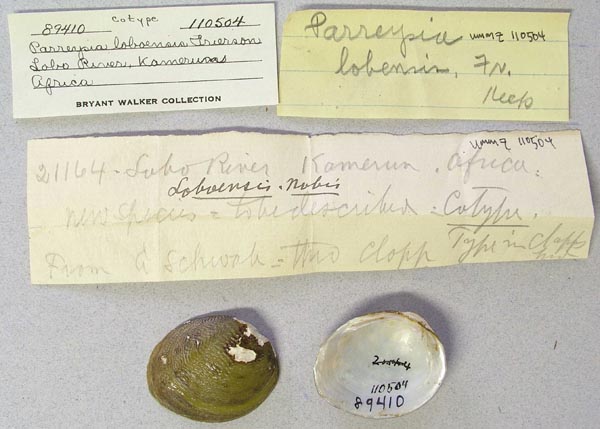 89410 cotype 110504
Parreysia loboensis Frierson
Lobo River, Kamerun
Africa
BRYANT WALKER COLLECTION
Parreysia ummz 110504
lobensis, Fr.
Keep
ummz 110504
21164 - Lobo River Kamerun. Africa.
Loboensis. nobis
new species = to be described = Cotype.
From A Schwab = thro Clapp Type in Clapp
110504
89410